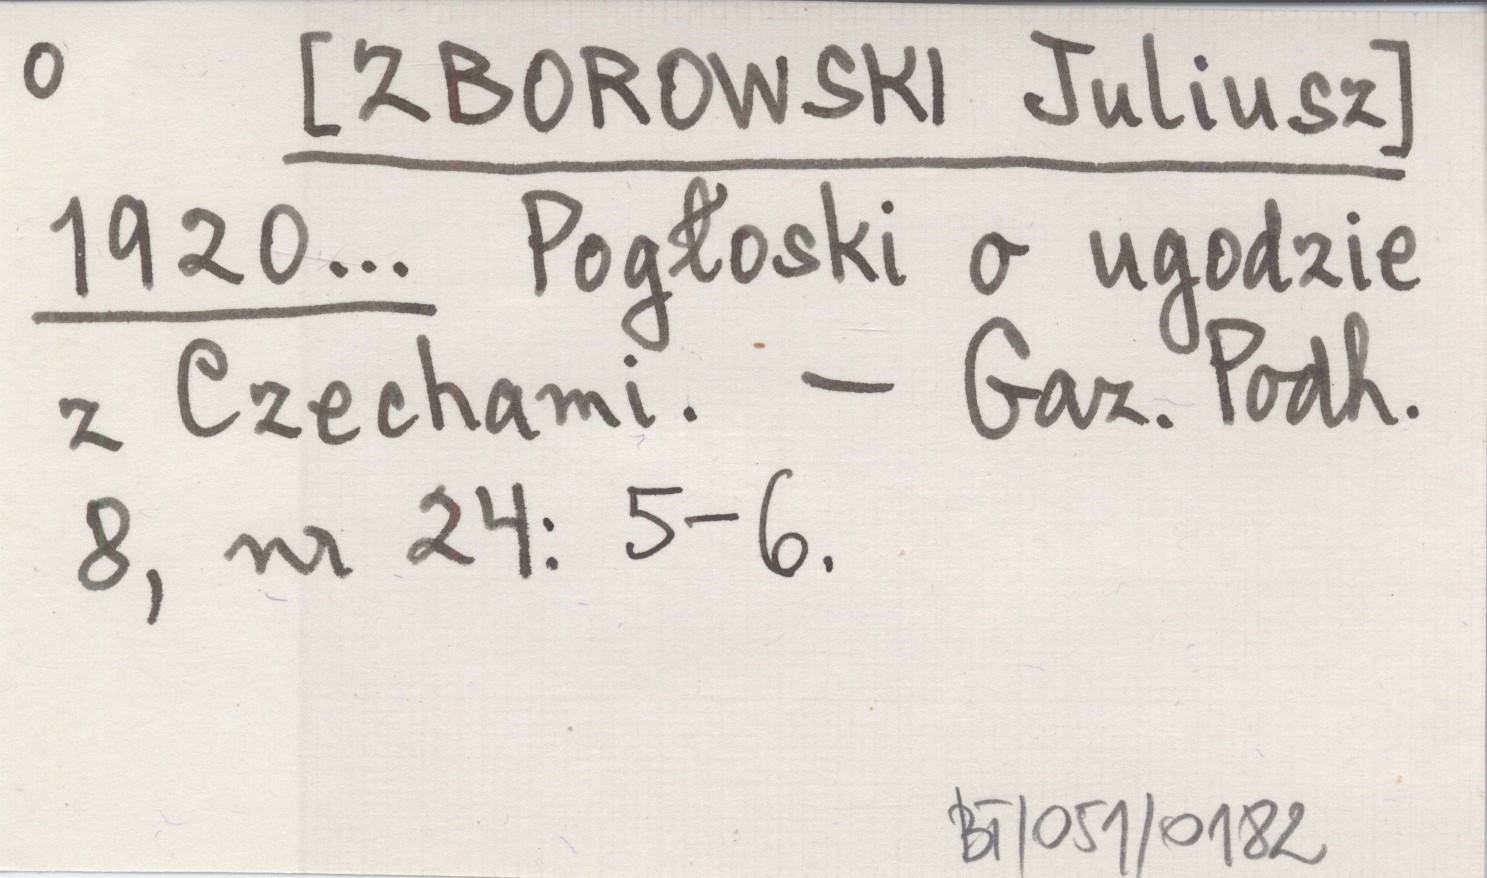 o [ZBOROWSKI Juliusz]
1920... Pogłoski o ugodzie
z Czechami. — Gaz. Podh.
8, nr 24: 5-6.
BT/051/0182